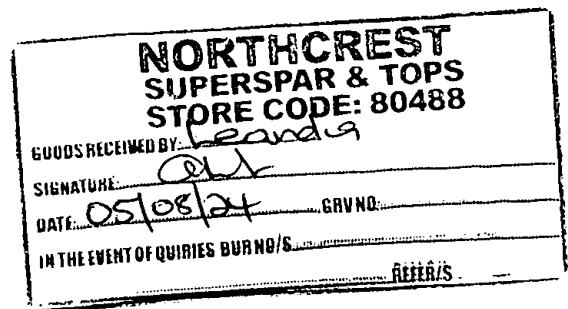 NORTHCREST
SUPERSPAR & TOPS
STORE CODE: 80488
GOODS RECEIVED BY: Leandra
SIGNATURE:
DATE: 05/08/24 GRV NO:
IN THE EVENT OF QUIRIES BUR NO/S.
REFER/S